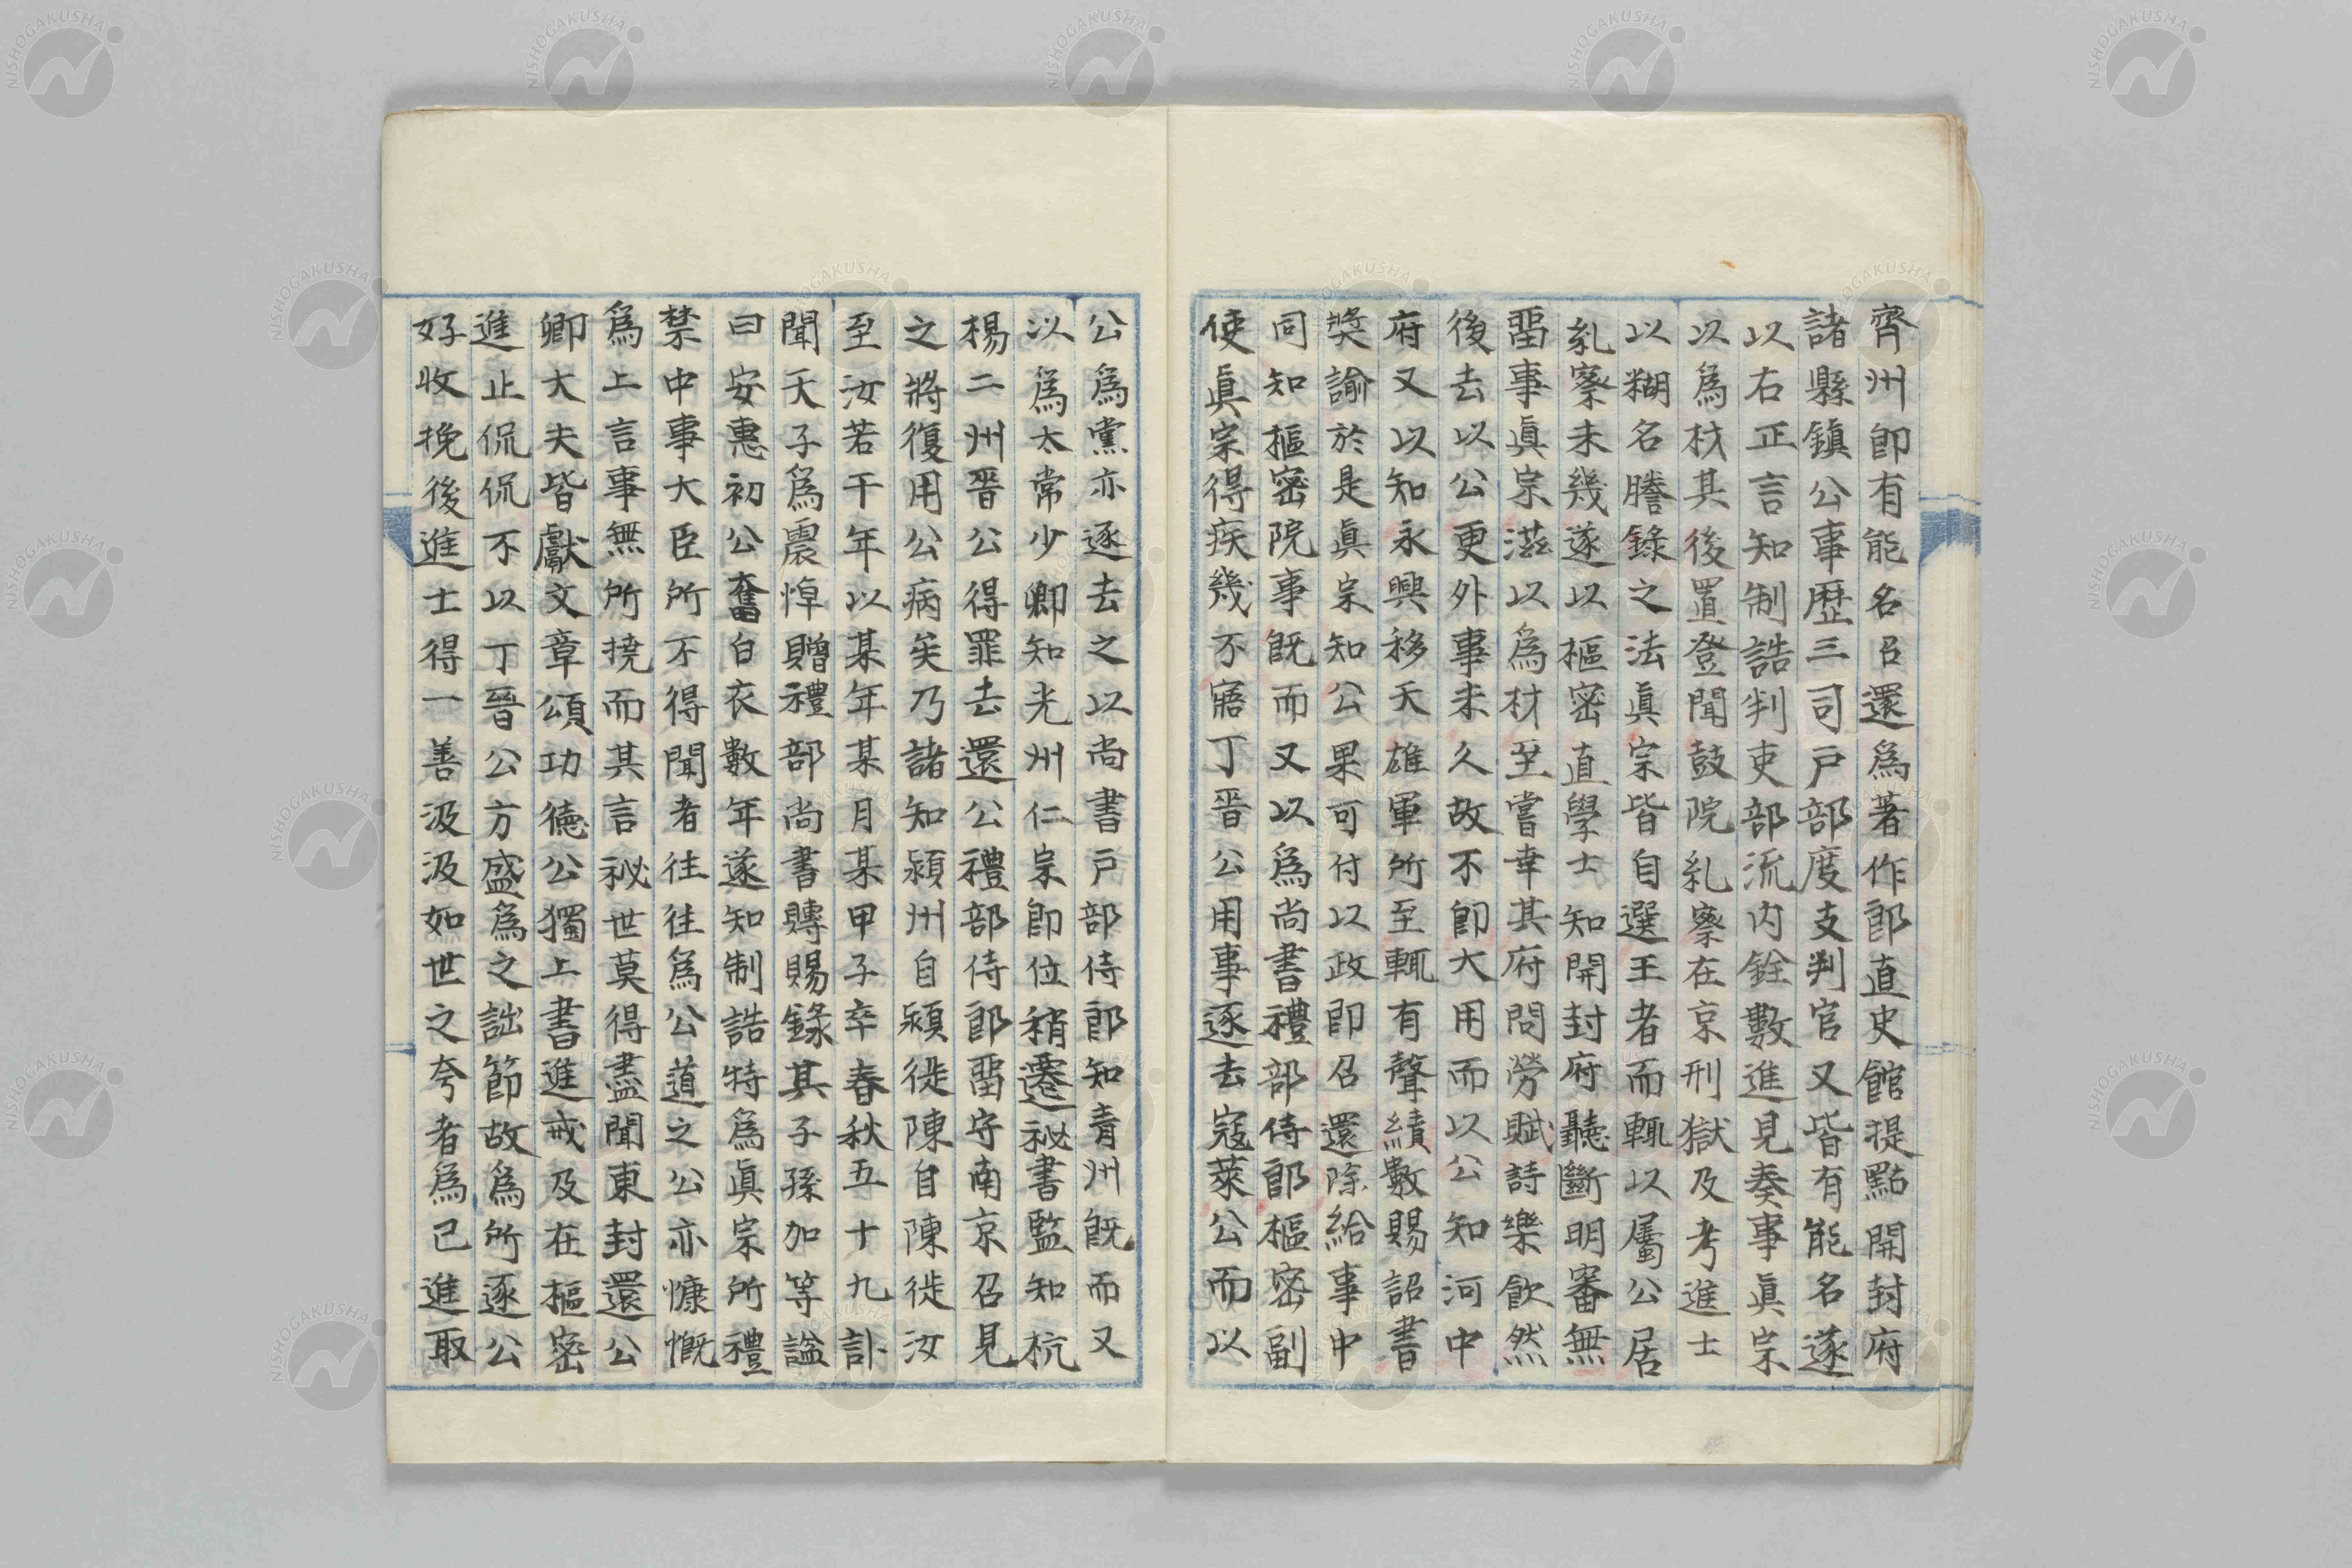 齊州卽有能名召還爲著作郎直史館提點開封府
諸縣鎭公事歷三司戸部度支判官又皆有能名遂
以右正言知制誥判吏部流内銓數進見奏事眞宗
以爲材其後置登聞鼓院糺察在京刑獄及考進士
以糊名謄錄之法眞宗皆自選王者而輒以屬公居
糺察未幾遂以樞密直學士知開封府聽斷明審無
畱事眞宗滋以爲材至嘗幸其府問勞賦詩樂飲然
後去以公更外事未久故不卽大用而以公知河中
府又以知永興移天雄軍所至輒有聲績數賜詔書
奬諭於是眞宗知公果可付以政卽召還除給事中
同知樞密院事旣而又以爲尚書禮部侍郎樞密副
使眞宗得疾幾不寤丁晉公用事逐去寇萊公而以
公爲黨亦逐去之以尚書戸部侍郎知青州旣而又
以爲太常少卿知光州仁宗卽位稍遷祕書監知杭
楊二州晉公得罪去還公禮部侍郎畱守南京召見
之將復用公病矣乃諸知潁州自潁徙陳自陳徙汝
至汝若干年以某年某月某甲子卒春秋五十九訃
聞天子爲震悼贈禮部尚書賻賜錄其子孫加等諡
曰安惠初公奮白衣數年遂知制誥特爲眞宗所禮
禁中事大臣所不得聞者往往爲公道之公亦慷慨
爲上言事無所撓而其言祕世莫得盡聞東封還公
卿大夫皆獻文章頌功德公獨上書進戒及在樞密
進止侃侃不以丁晉公方盛爲之詘節故爲所逐公
好收挽後進士得一善汲汲如世之夸者爲己進取
NISHOGAKUSHA